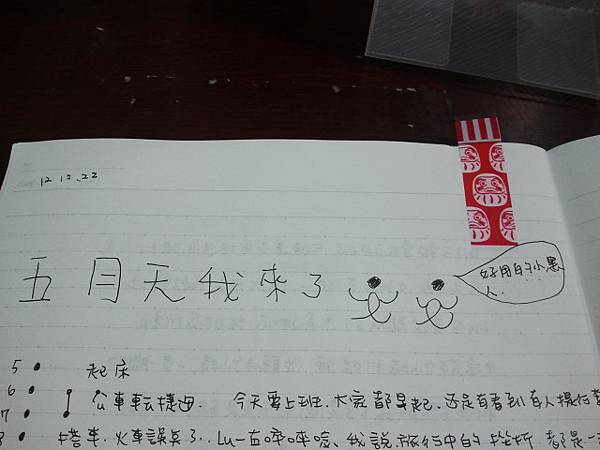 12.12.22
五月天我來了
好用的小黑
人...
5 起床
6 公車転捷運. 今天要上班.大家都早起.還是有看到有人提拍
7
8 搭車.火車誤点了..Lu一在 我說.旅行中的挫折.都是一